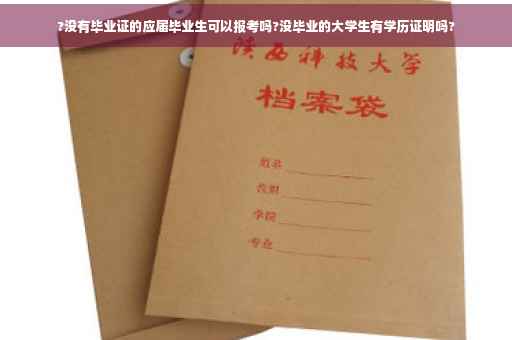 ?没有毕业证的应届毕业生可以报考吗?没毕业的大学生有学历证明吗?
陕西科技大学
档案袋
姓名
学院
专业